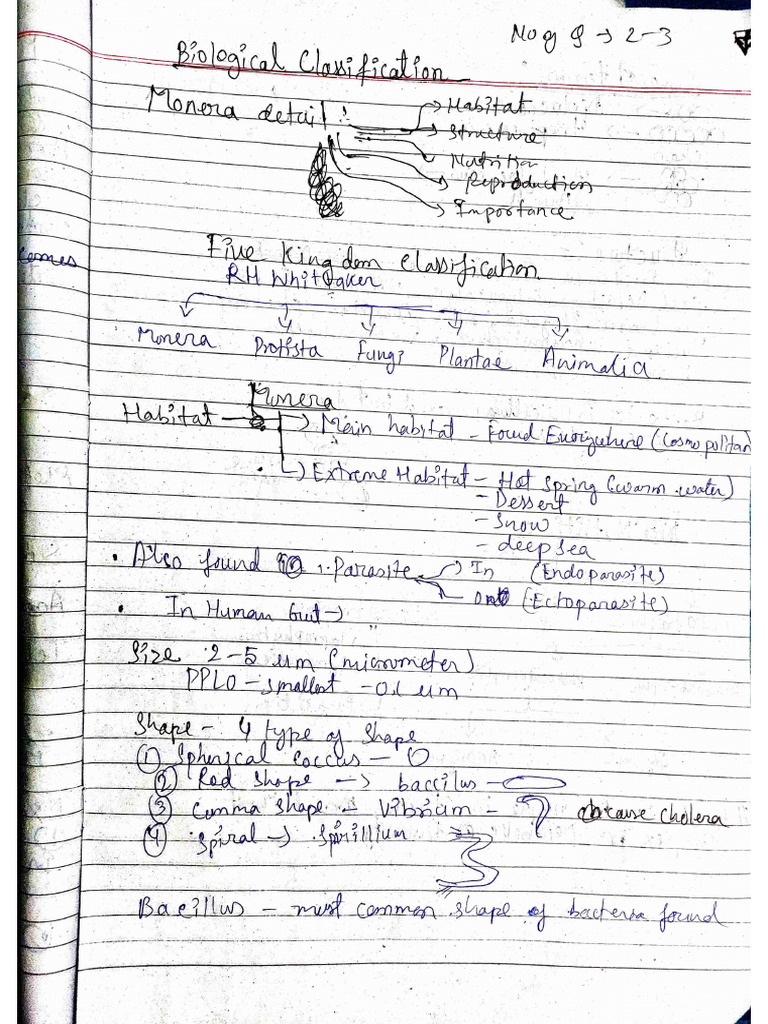 No of Q → 2-3
Biological Classification
Monera detail :
→ Habitat
→ Structure
→ Nutrition
→ Reproduction
→ Importance
Five Kingdom Classification
RH Whittaker
Monera Protista Fungi Plantae Animalia
Monera
Habitat → Main habitat - Found (Cosmopolitan
→ Extreme Habitat - Hot Spring (warm water)
- Dessert
- Snow
- deep sea
• Also found :- Parasite → In (Endoparasite)
→ (Ectoparasite)
• In Human Gut →
Size 2-5 um (micrometer)
PPLO - smallest - 0.1 um
Shape - 4 type of shape
① Spherical Coccus -
② Rod shape → baccilus -
③ Comma shape - Vibrium - cause cholera
④ Spiral → Spirillium
Bacillus - most common shape of bacteria found